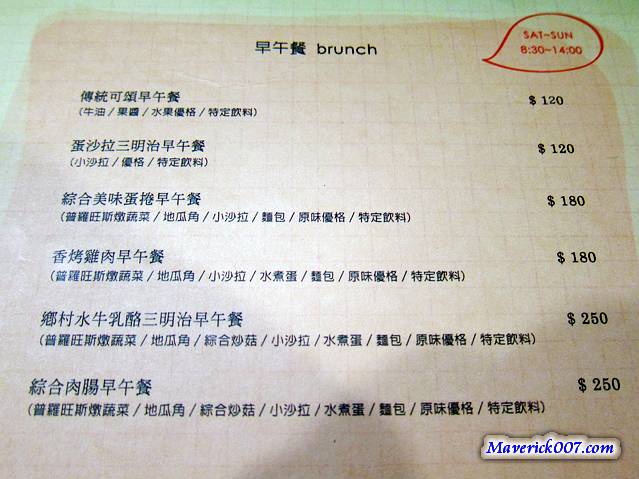 早午餐 brunch
SAT~SUN
8:30~14:00
傳統可頌早午餐 $ 120
(牛油/果醬/水果優格/特定飲料)
蛋沙拉三明治早午餐 $ 120
(小沙拉/優格/特定飲料)
綜合美味蛋捲早午餐 $ 180
(普羅旺斯燉蔬菜/地瓜角/小沙拉/麵包/原味優格/特定飲料)
香烤雞肉早午餐 $ 180
(普羅旺斯燉蔬菜/地瓜角/小沙拉/水煮蛋/麵包/原味優格/特定飲料)
鄉村水牛乳酪三明治早午餐 $ 250
(普羅旺斯燉蔬菜/地瓜角/綜合炒菇/小沙拉/水煮蛋/麵包/原味優格/特定飲料)
綜合肉腸早午餐 $ 250
(普羅旺斯燉蔬菜/地瓜角/綜合炒菇/小沙拉/水煮蛋/麵包/原味優格/特定飲料)
Maverick007.com